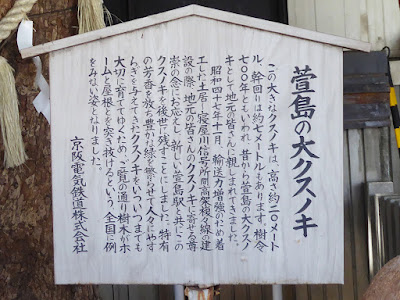 萱島の大クスノキ
この大きなクスノキは、高さ約二〇メート
ル、幹回りは約七メートルもあります。樹令
七〇〇年といわれ、昔から萱島の大クスノ
キとして地元の皆さんに親しまれてきました。
昭和四十七年十一月、輸送力増強のため着
工した土居―寝屋川信号所間高架複々線の建
設の際、地元の皆さんのクスノキに寄せる尊
崇の念にお応えし、新しい萱島駅と共にこの
クスノキを後世に残すことにしました。特有
の芳香を放ち豊かな緑を繁らせて人々にやす
らぎを与えてきたクスノキをいついつまでも
大切に育ててゆくため、ご覧の通り樹木がホ
ームと屋根とを突き抜けるという、全国に例
をみない姿となりました。
京阪電気鉄道株式会社